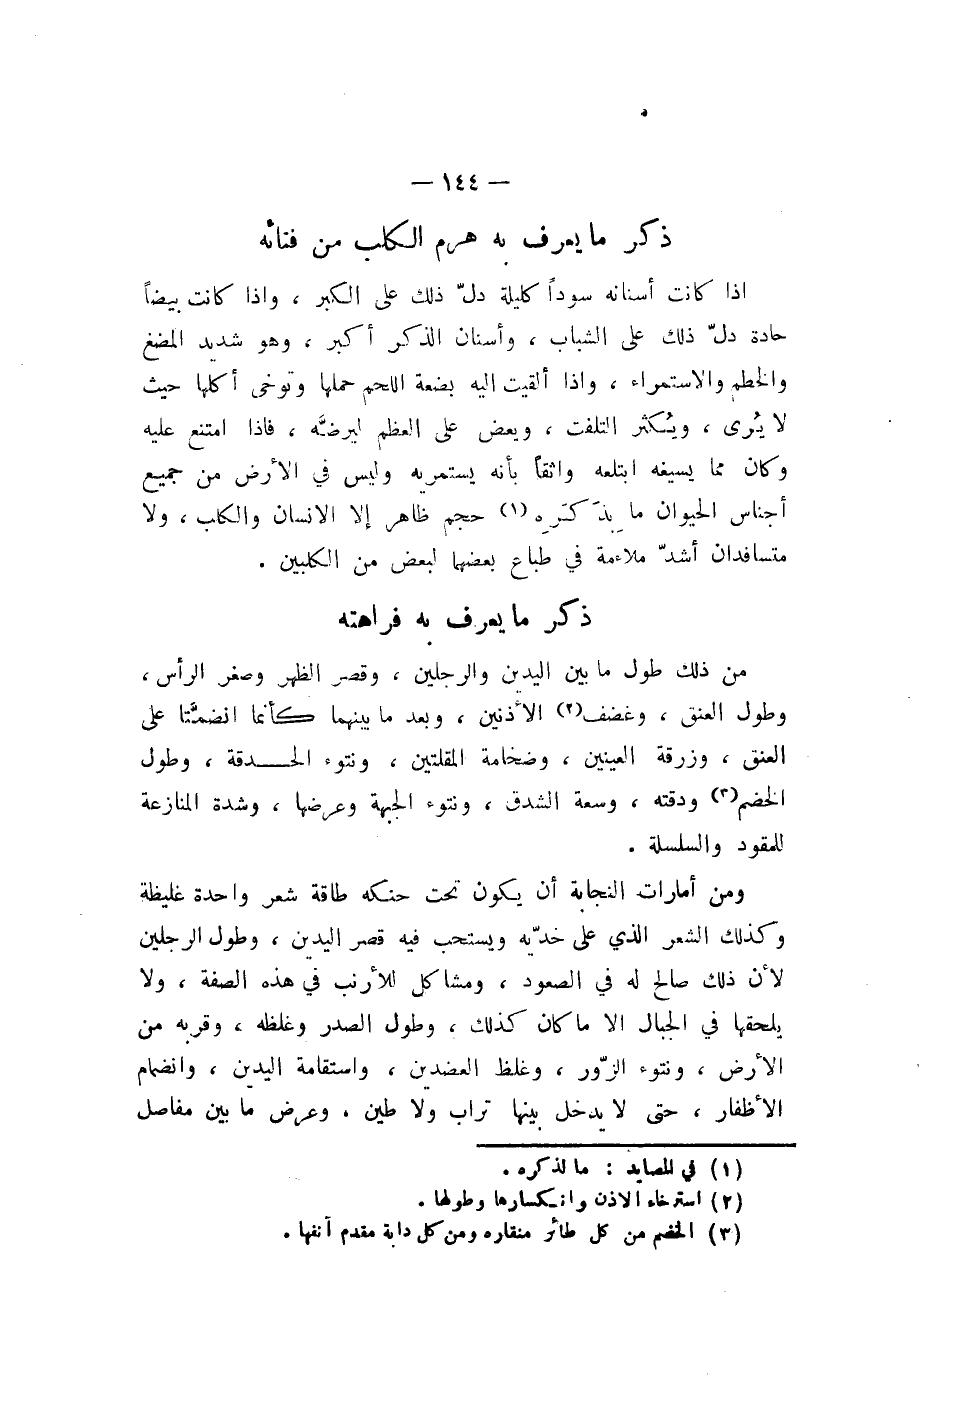 — ١٤٤ —
ذكر ما يعرف به هرم الكلب من فتائه
اذا كانت أسنانه سوداً كليلة دلّ ذلك على الكبر ، واذا كانت بيضاً
حادة دلّ ذلك على الشباب ، وأسنان الذكر أكبر ، وهو شديد المضغ
والخطم والاستمراء ، واذا ألقيت اليه بضعة اللحم حملها وتوخى أكلها حيث
لا يُرى ، ويُكثر التلفت ، ويعض على العظم ليرضَّه ، فاذا امتنع عليه
وكان مما يسيغه ابتلعه واثقاً بأنه يستمريه وليس في الأرض من جميع
أجناس الحيوان ما لِذَكَرِه (١) حجم ظاهر إلا الانسان والكلب ، ولا
متسافدان أشدّ ملاءمة في طباع بعضها لبعض من الكلبين .
ذكر ما يعرف به فراهته
من ذلك طول ما بين اليدين والرجلين ، وقصر الظهر وصغر الرأس ،
وطول العنق ، وغضف (٢) الأذنين ، وبعد ما بينهما كأنما انضمَّتا على
العنق ، وزرقة العينين ، وضخامة المقلتين ، ونتوء الحــدقة ، وطول
الخضم (٣) ودقته ، وسعة الشدق ، ونتوء الجبهة وعرضها ، وشدة المنازعة
للمقود والسلسلة .
ومن أمارات النجابة أن يكون تحت حنكه طاقة شعر واحدة غليظة
وكذلك الشعر الذي على خدّيه ويستحب فيه قصر اليدين ، وطول الرجلين
لأن ذلك صالح له في الصعود ، ومشاكل للأرنب في هذه الصفة ، ولا
يلحقها في الجبال الا ما كان كذلك ، وطول الصدر وغلظه ، وقربه من
الأرض ، ونتوء الزّور ، وغلظ العضدين ، واستقامة اليدين ، وانضمام
الأظفار ، حتى لا يدخل بينها تراب ولا طين . وعرض ما بين مفاصل
(١) في المصايد : ما لذكره .
(٢) استرخاء الاذن وانكسارها وطولها .
(٣) الخضم من كل طائر منقاره ومن كل دابة مقدم أنفها .